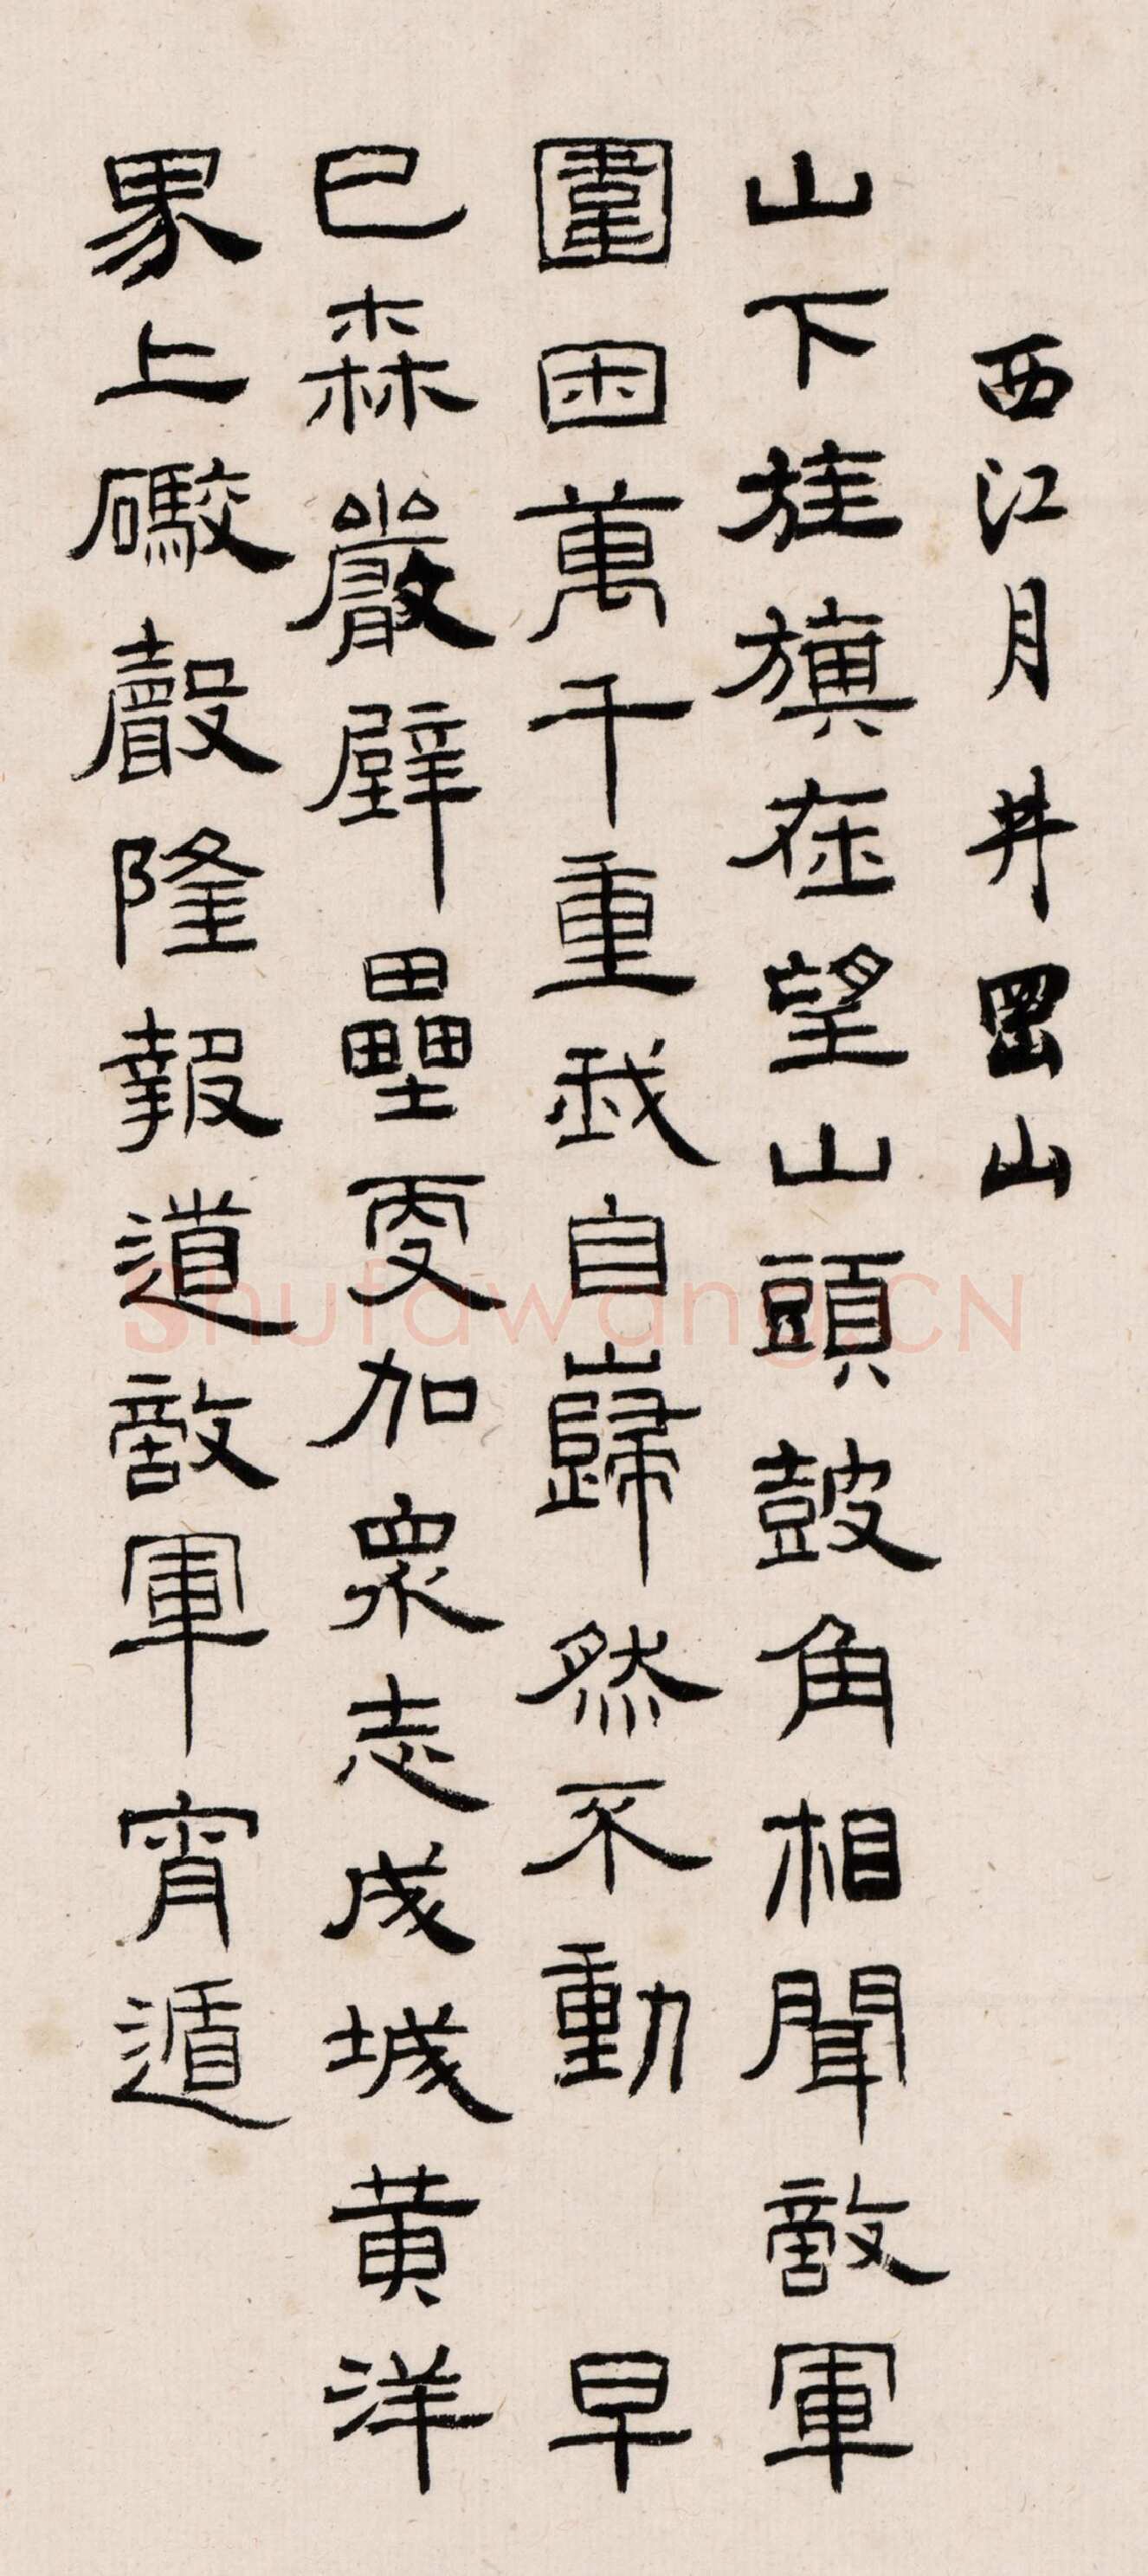 西江月 井岡山
山下旌旗在望山頭鼓角相聞敵軍
圍困萬千重我自巋然不動 早
已森嚴壁壘更加眾志成城黃洋
界上礟聲隆報道敵軍宵遁
Shufawang.CN